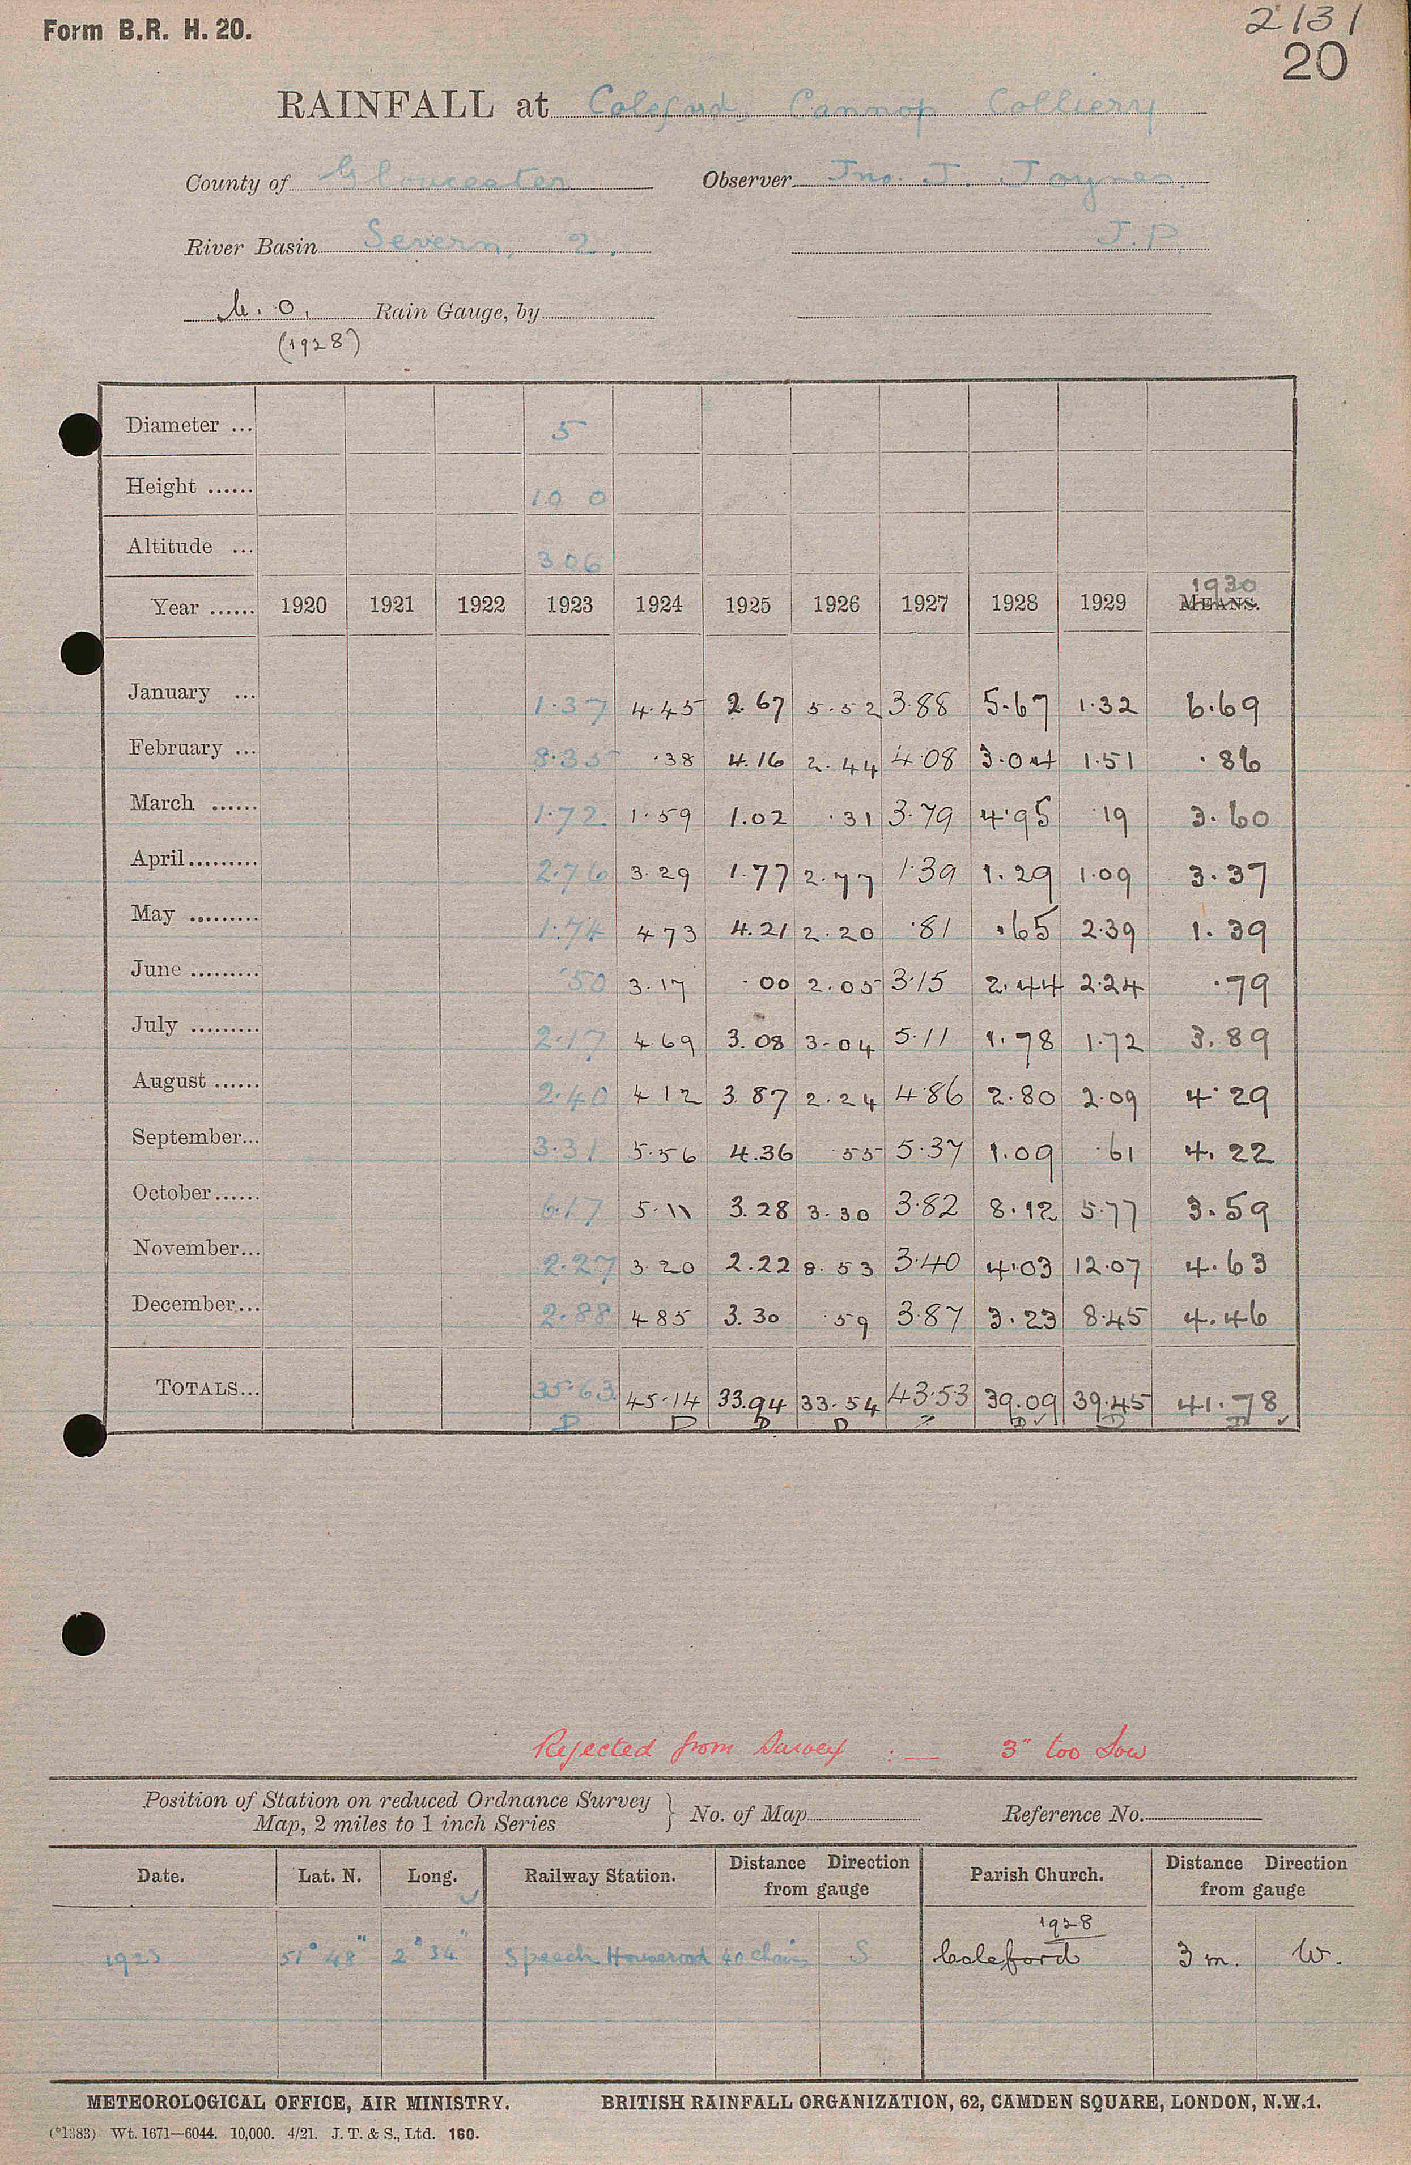 Form B.R. H. 20.
2131
20
RAINFALL at Coleford, Cannop Colliery
County of Gloucester Observer Jno. J. Joynes.
River Basin Severn, 2. J.P.
M.O. Rain Gauge, by
(1928)
Diameter ... 5
Height ...... 1.0 0
Altitude ... 306
1930
Year ...... 1920 1921 1922 1923 1924 1925 1926 1927 1928 1929 MEANS.
January ... 1.37 4.45 2.67 5.52 3.88 5.67 1.32 6.69
February ... 8.35 .38 4.16 2.44 4.08 3.04 1.51 .86
March ...... 1.72 1.59 1.02 .31 3.79 4.95 .19 3.60
April ......... 2.76 3.29 1.77 2.77 1.39 1.29 1.09 3.37
May ......... 1.74 4 73 4.21 2.20 .81 .65 2.39 1.39
June ......... .50 3.17 .00 2.05 3.15 2.44 2.24 .79
July ......... 2.17 4.69 3.08 3.04 5.11 1.78 1.72 3.89
August ...... 2.40 4 12 3.87 2.24 4.86 2.80 2.09 4.29
September... 3.31 5.56 4.36 .55 5.37 1.09 .61 4.22
October...... 6.17 5.11 3.28 3.30 3.82 8.12 5.77 3.59
November... 2.27 3.20 2.22 8.53 3.40 4.03 12.07 4.63
December... 2.88 4 85 3.30 .59 3.87 3.23 8.45 4.46
TOTALS... 35.63 45.14 33.94 33.54 43.53 39.09 39.45 41.78
D D D D D D D
Rejected from Survey :— 3" too low
Position of Station on reduced Ordnance Survey Map, 2 miles to 1 inch Series } No. of Map Reference No.
Date. Lat. N. Long. Railway Station. Distance Direction from gauge Parish Church. Distance Direction from gauge
1928
1923 51° 48" 2° 34" Speech Houseroad 40 chains S Coleford 3 m. W.
METEOROLOGICAL OFFICE, AIR MINISTRY. BRITISH RAINFALL ORGANIZATION, 62, CAMDEN SQUARE, LONDON, N.W.1.
(*1383) Wt. 1671—6044. 10,000. 4/21. J. T. & S., Ltd. 160.